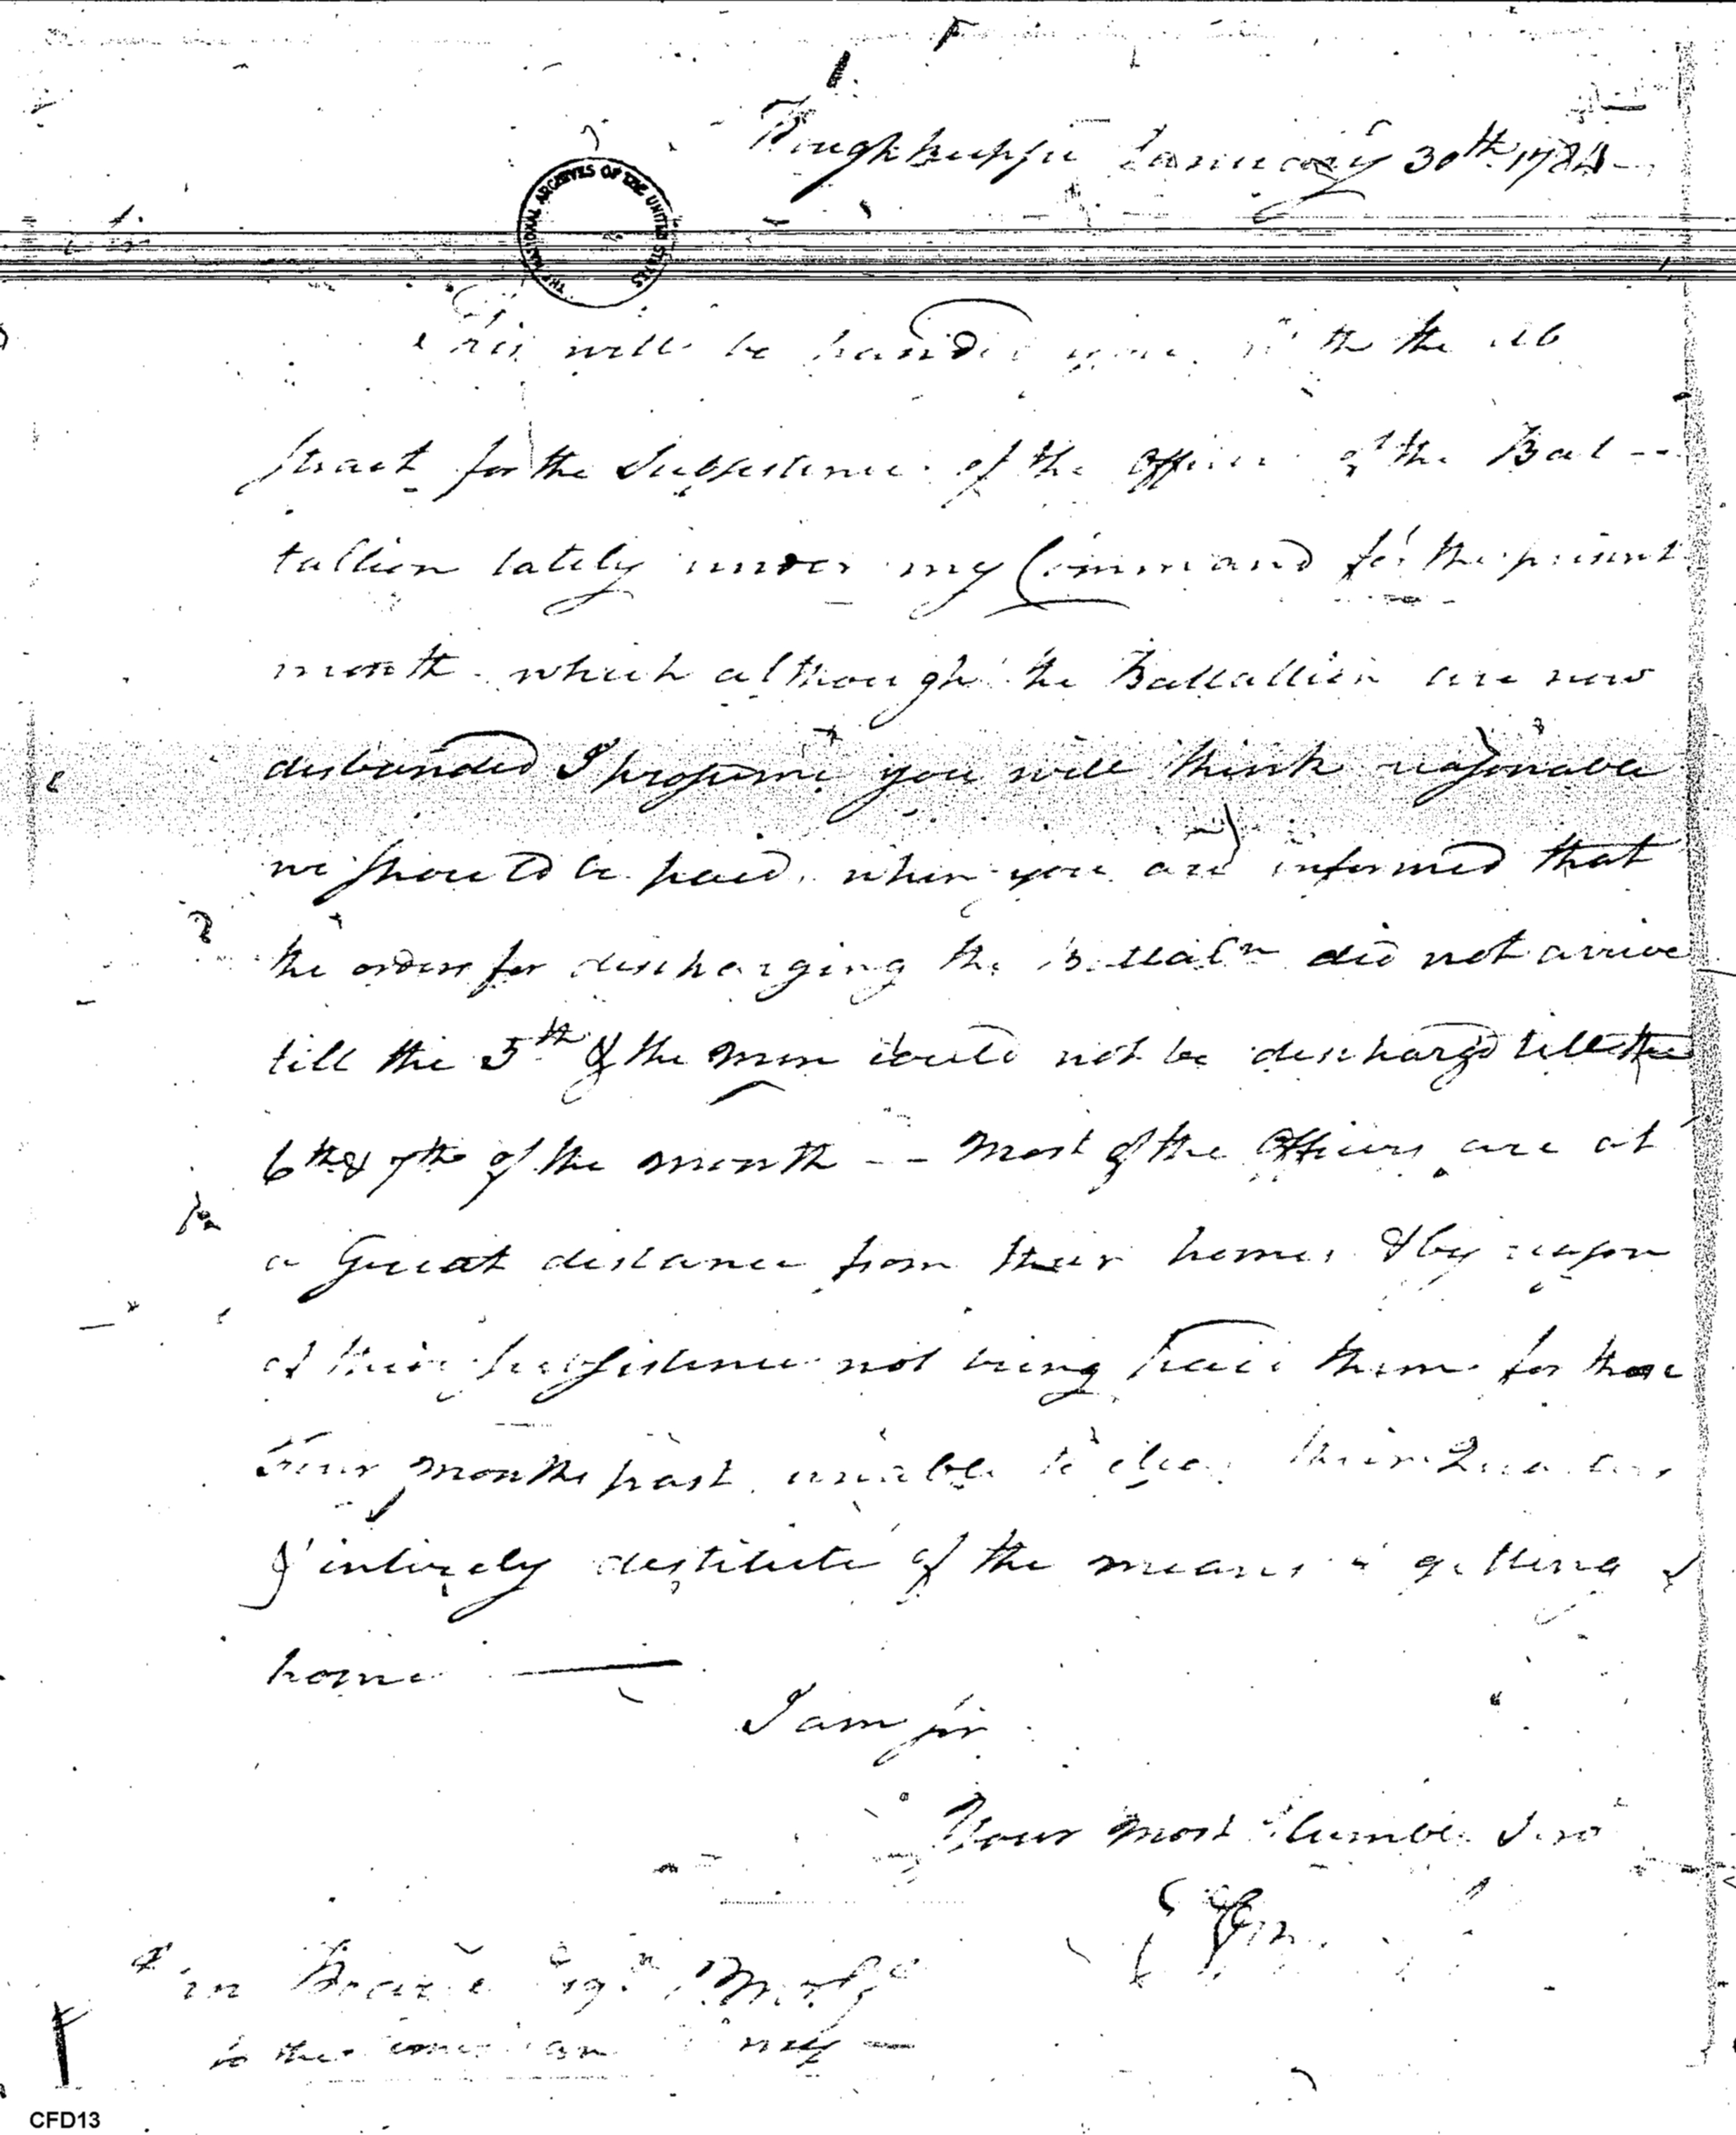 Poughkeepsie January 30th 1784
THE NATIONAL ARCHIVES OF THE UNITED STATES
This will be handed you with the Ab
stract for the Subsistence of the Officers of the Bat--
tallion lately under my Command for the present
month which although the Battallion are now
disbanded I presume you will think reasonable
we should be paid, when you are informed that
the orders for discharging the Battaln did not arrive
till the 5th & the men could not be discharg'd till the
6th & 7th of the month -- Most of the Officers are at
a Great distance from their homes & by reason
of their Subsistence not being paid them for these
Four months past unable to clear their Quarters
& intirely destitute of the means of getting
home —
I am Sir
Your most Humble Serv
Esqr
to the American Army —
CFD13